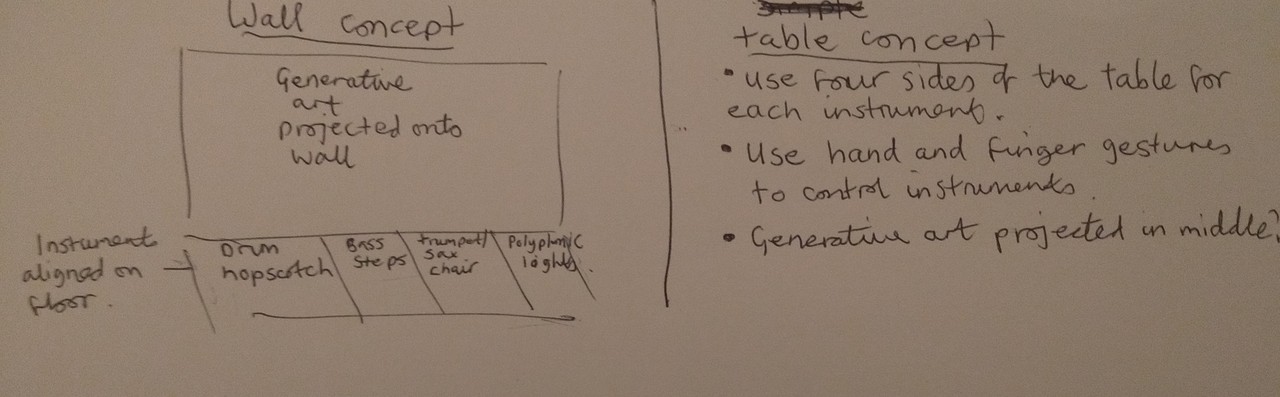 Wall concept
Generative
art
projected onto
wall
Instrument
aligned on
floor.
Drum
hopscotch
Bass
steps
trumpet/
sax
chair
Polyphonic
lights.
table concept
• use four sides of the table for
each instrument.
• Use hand and finger gestures
to control instruments.
• Generative art projected in middle?